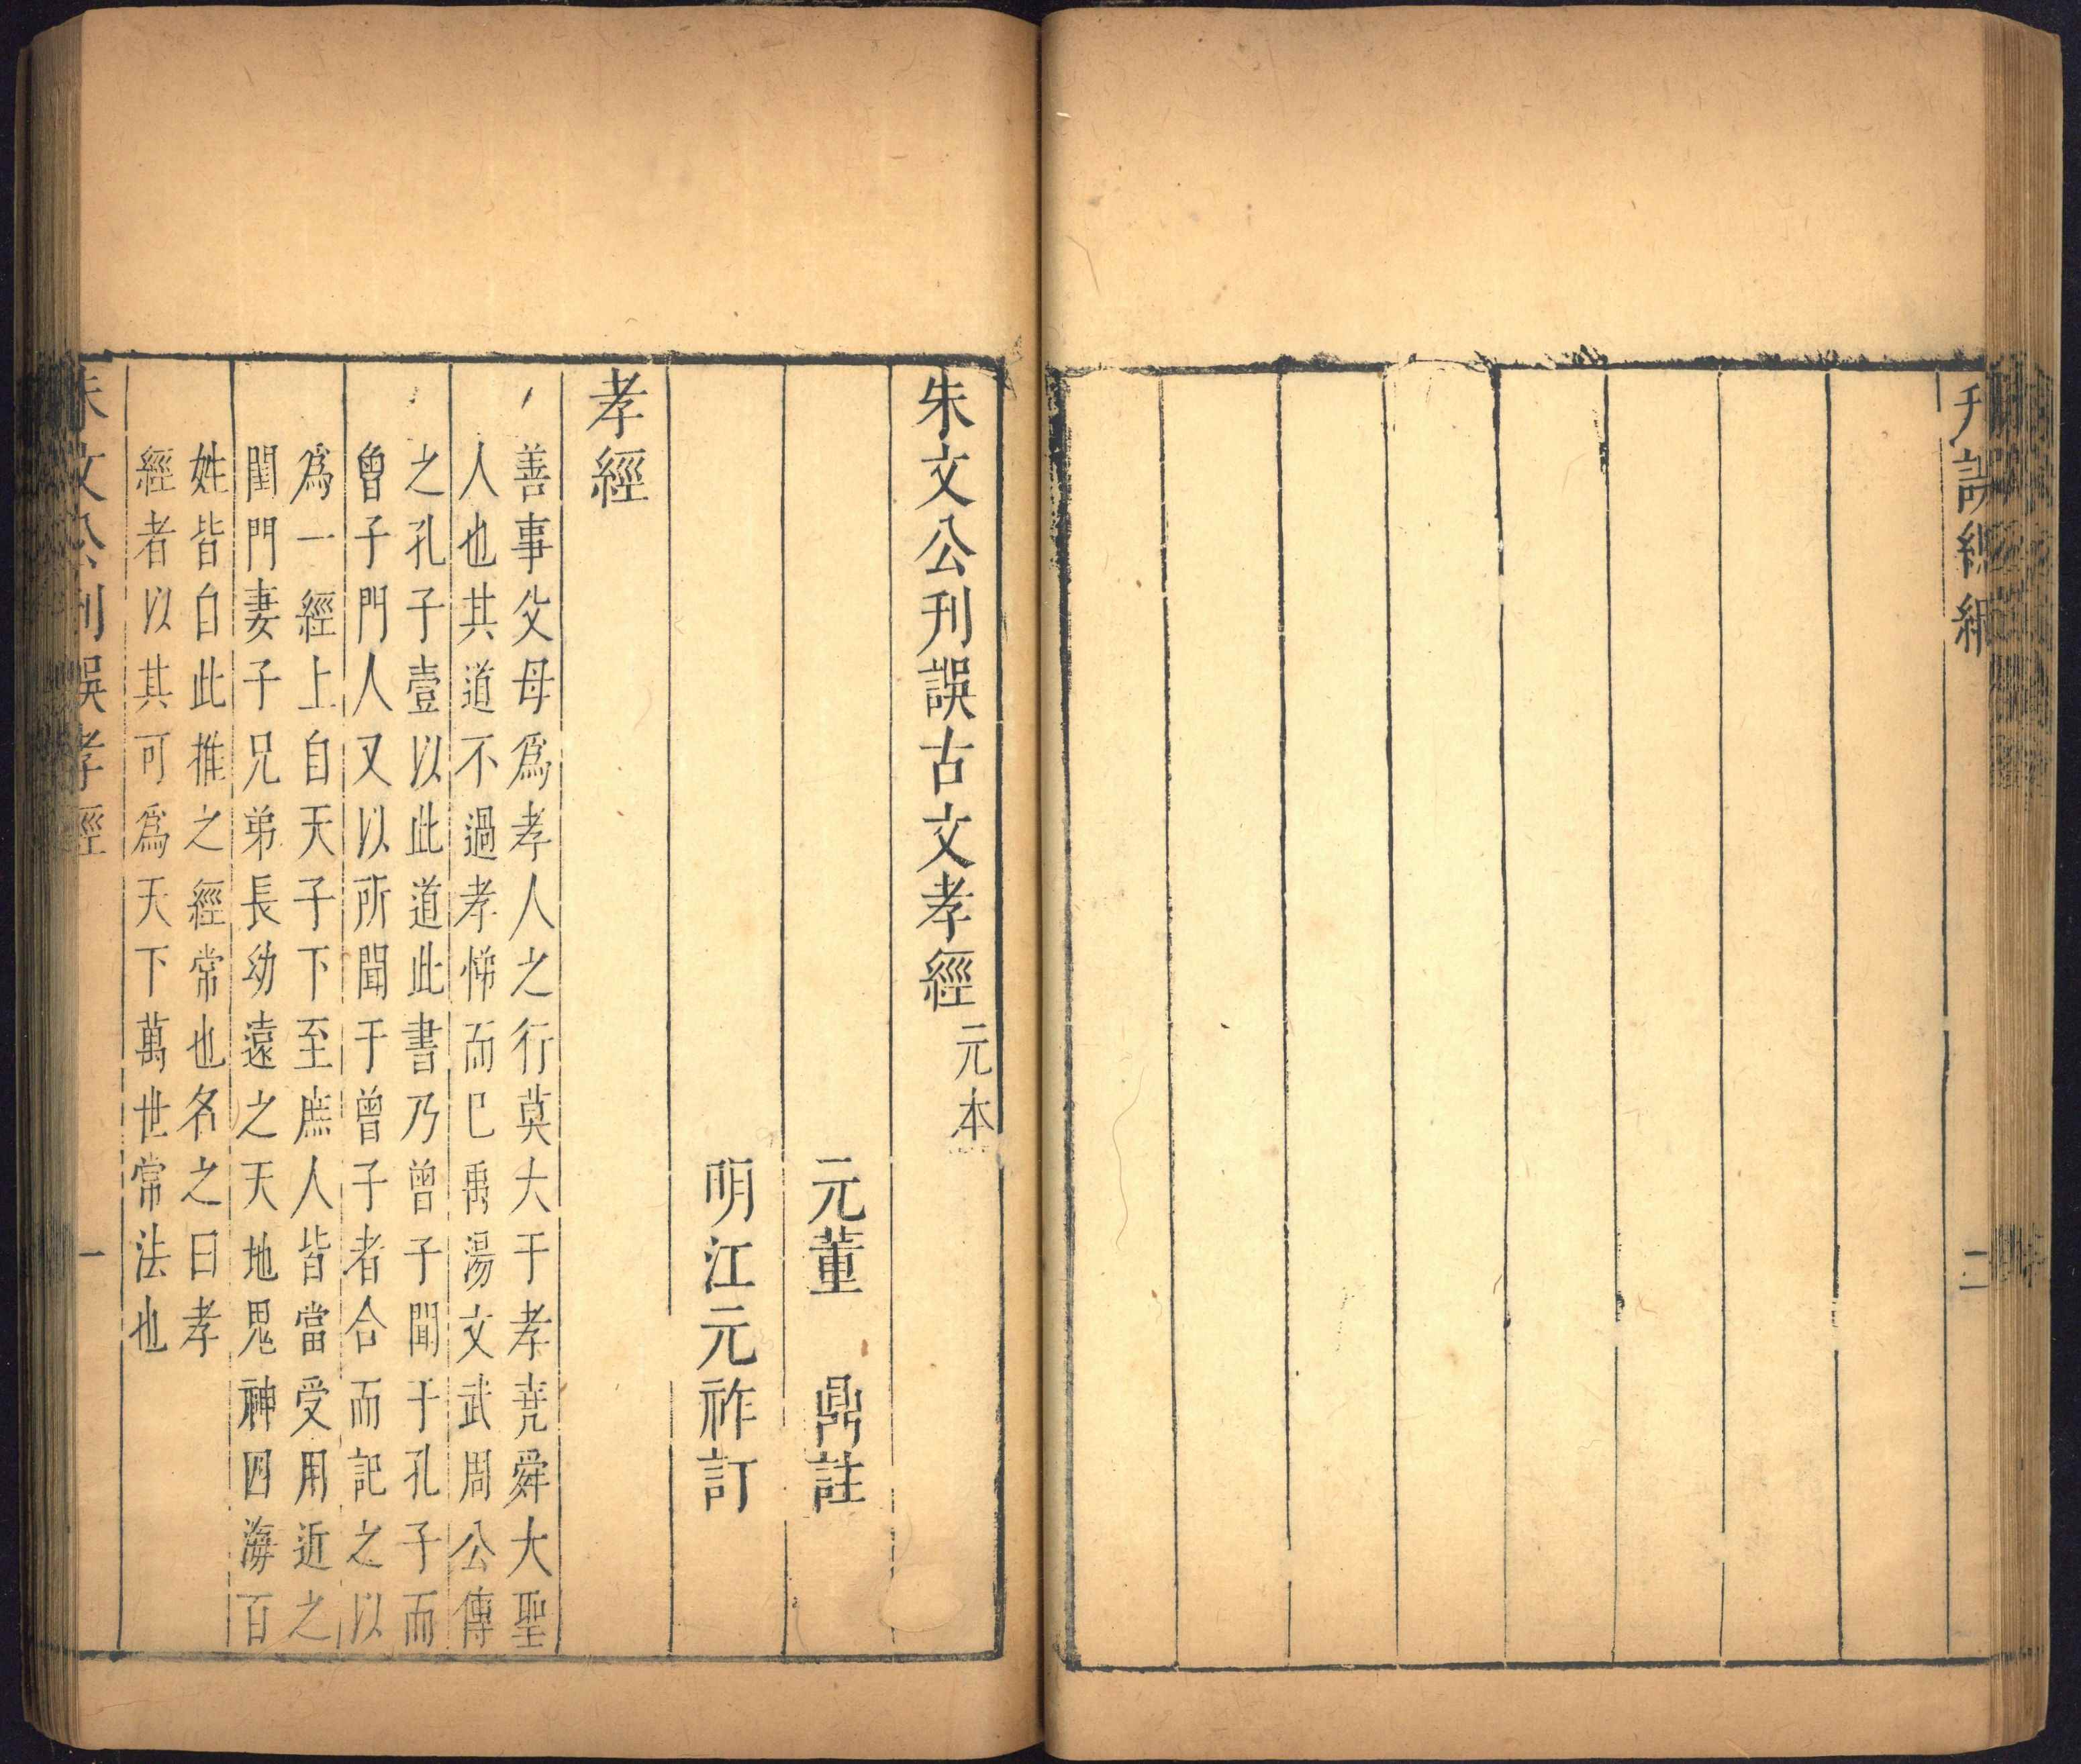 二
朱文公刊誤古文孝經元本
元董　鼎註
明江元祚訂
孝經
善事父母爲孝人之行莫大于孝堯舜大聖
人也其道不過孝悌而已禹湯文武周公傳
之孔子壹以此道此書乃曾子聞于孔子而
曾子門人又以所聞于曾子者合而記之以
爲一經上自天子下至庶人皆當受用近之
閨門妻子兄弟長幼遠之天地鬼神四海百
姓皆自此推之經常也名之曰孝
經者以其可爲天下萬世常法也
朱文公刊誤孝經
一